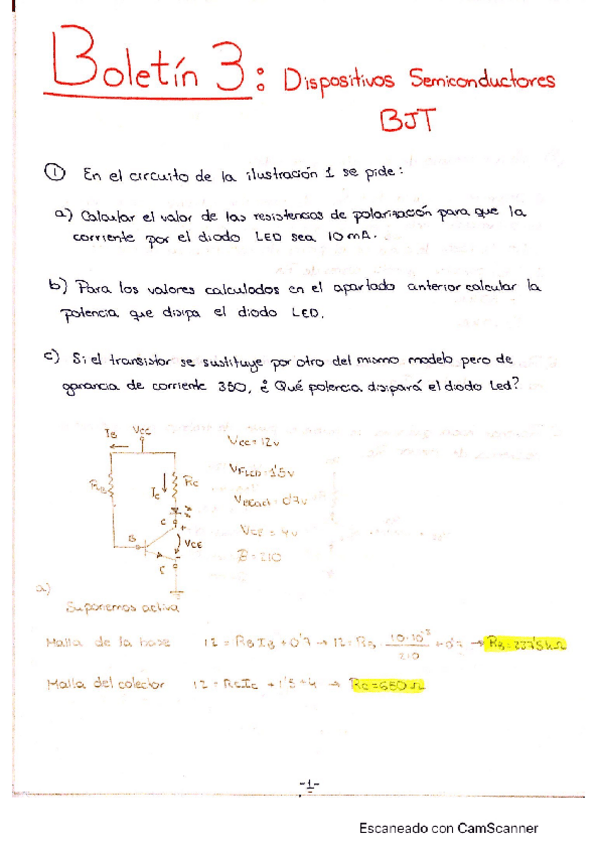 Boletín 3: Dispositivos Semiconductores
BJT
① En el circuito de la ilustración 1 se pide:
a) Calcular el valor de las resistencias de polarización para que la
corriente por el diodo LED sea 10mA.
b) Para los valores calculados en el apartado anterior calcular la
potencia que disipa el diodo LED.
c) Si el transistor se sustituye por otro del mismo modelo pero de
ganancia de corriente 350, ¿Qué potencia disipará el diodo Led?
IB VCC
RB IC RC
C
B VCE
Vcc = 12v
VFLED = 1'5v
= 0'7v
VCE = 4v
B = 210
a)
Suponemos activa
Malla de la base 12 = RB IB + 0'7 → 12 = RB · 10·10⁻³ / 210 + 0'7 → RB = 237'5kΩ
Malla del colector 12 = RcIc + 1'5 + 4 → Rc = 650 Ω
-1-
Escaneado con CamScanner